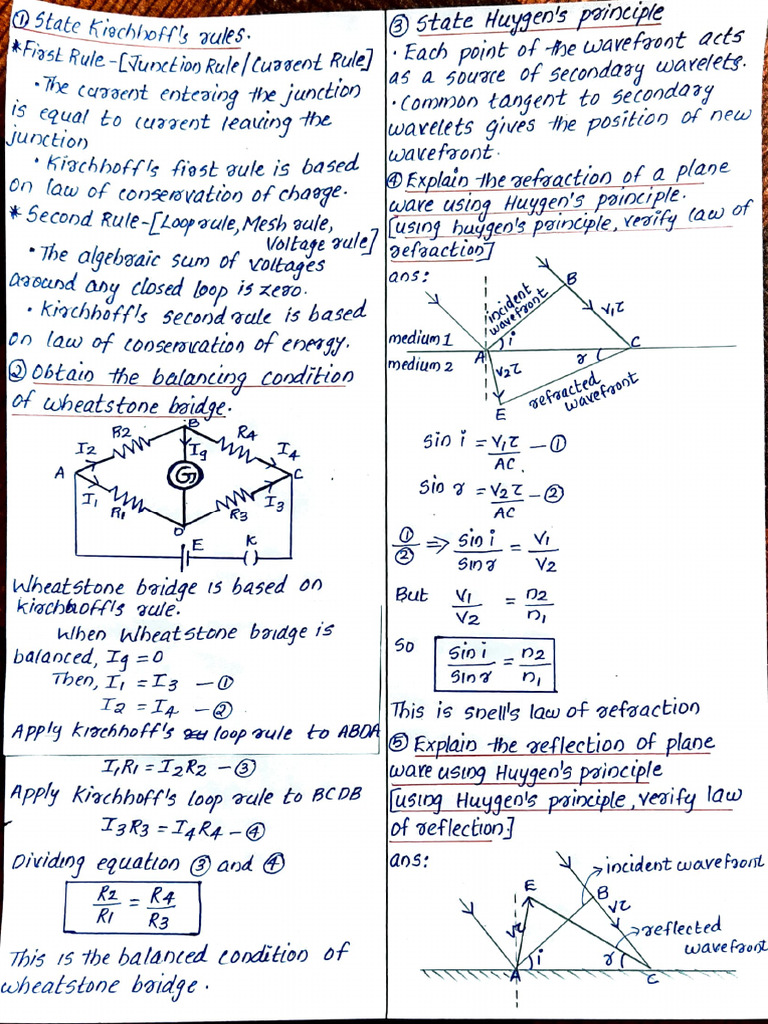 ① State Kirchhoff's rules.
* First Rule-[Junction Rule/Current Rule]
• The current entering the junction
is equal to current leaving the
junction
• Kirchhoff's first rule is based
on law of conservation of charge.
* Second Rule-[Loop rule, Mesh rule,
Voltage rule]
• The algebraic sum of voltages
around any closed loop is zero.
• Kirchhoff's second rule is based
on law of conservation of energy.
② Obtain the balancing condition
of wheatstone bridge.
B
R2 R4
I2 Ig I4
A G C
I1 I3
R1 R3
D
E K
Wheatstone bridge is based on
Kirchhoff's rule.
When Wheatstone bridge is
balanced, Ig = 0
Then, I1 = I3 — ①
I2 = I4 — ②
Apply Kirchhoff's loop rule to ABDA
I1R1 = I2R2 — ③
Apply Kirchhoff's loop rule to BCDB
I3R3 = I4R4 — ④
Dividing equation ③ and ④
R2/R1 = R4/R3
This is the balanced condition of
wheatstone bridge.
③ State Huygen's principle
• Each point of the wavefront acts
as a source of secondary wavelets.
• Common tangent to secondary
wavelets gives the position of new
wavefront.
④ Explain the refraction of a plane
wave using Huygen's principle.
[using huygen's principle, verify law of
refraction]
ans:
B
incident
wavefront
v1τ
medium 1 i
A r C
medium 2
v2τ
refracted
wavefront
E
sin i = v1τ/AC — ①
sin r = v2τ/AC — ②
①/② ⇒ sin i/sin r = v1/v2
But v1/v2 = n2/n1
So sin i/sin r = n2/n1
This is snell's law of refraction
⑤ Explain the reflection of plane
wave using Huygen's principle
[using Huygen's principle, verify law
of reflection]
ans:
incident wavefront
E B
vτ
vτ
reflected
wavefront
i r
A C